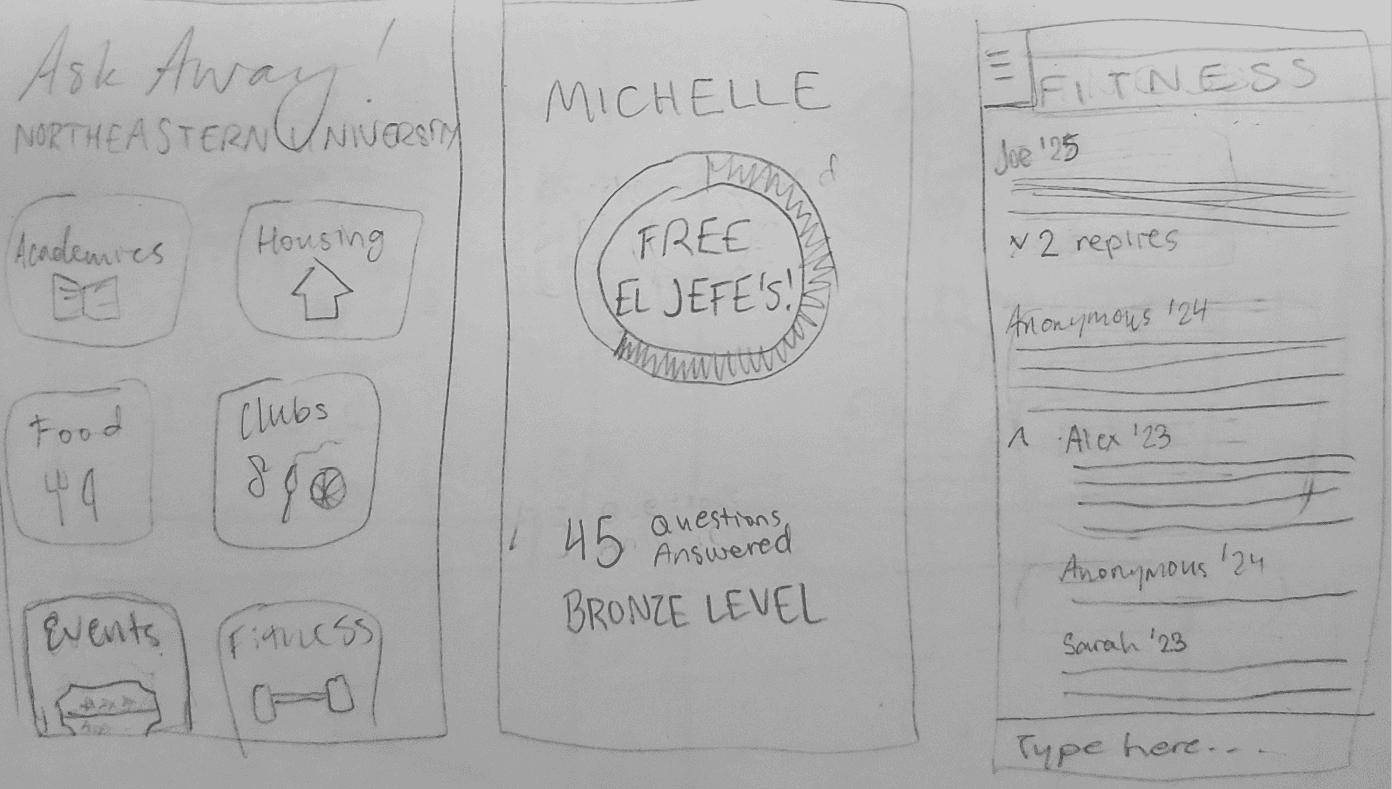 Ask Away!
NORTHEASTERN UNIVERSITY
Academics
Housing
Food
Clubs
Events
Fitness
MICHELLE
FREE
EL JEFE'S!
45 Questions
Answered
BRONZE LEVEL
FITNESS
Joe '25
2 replies
Anonymous '24
Alex '23
Anonymous '24
Sarah '23
Type here...